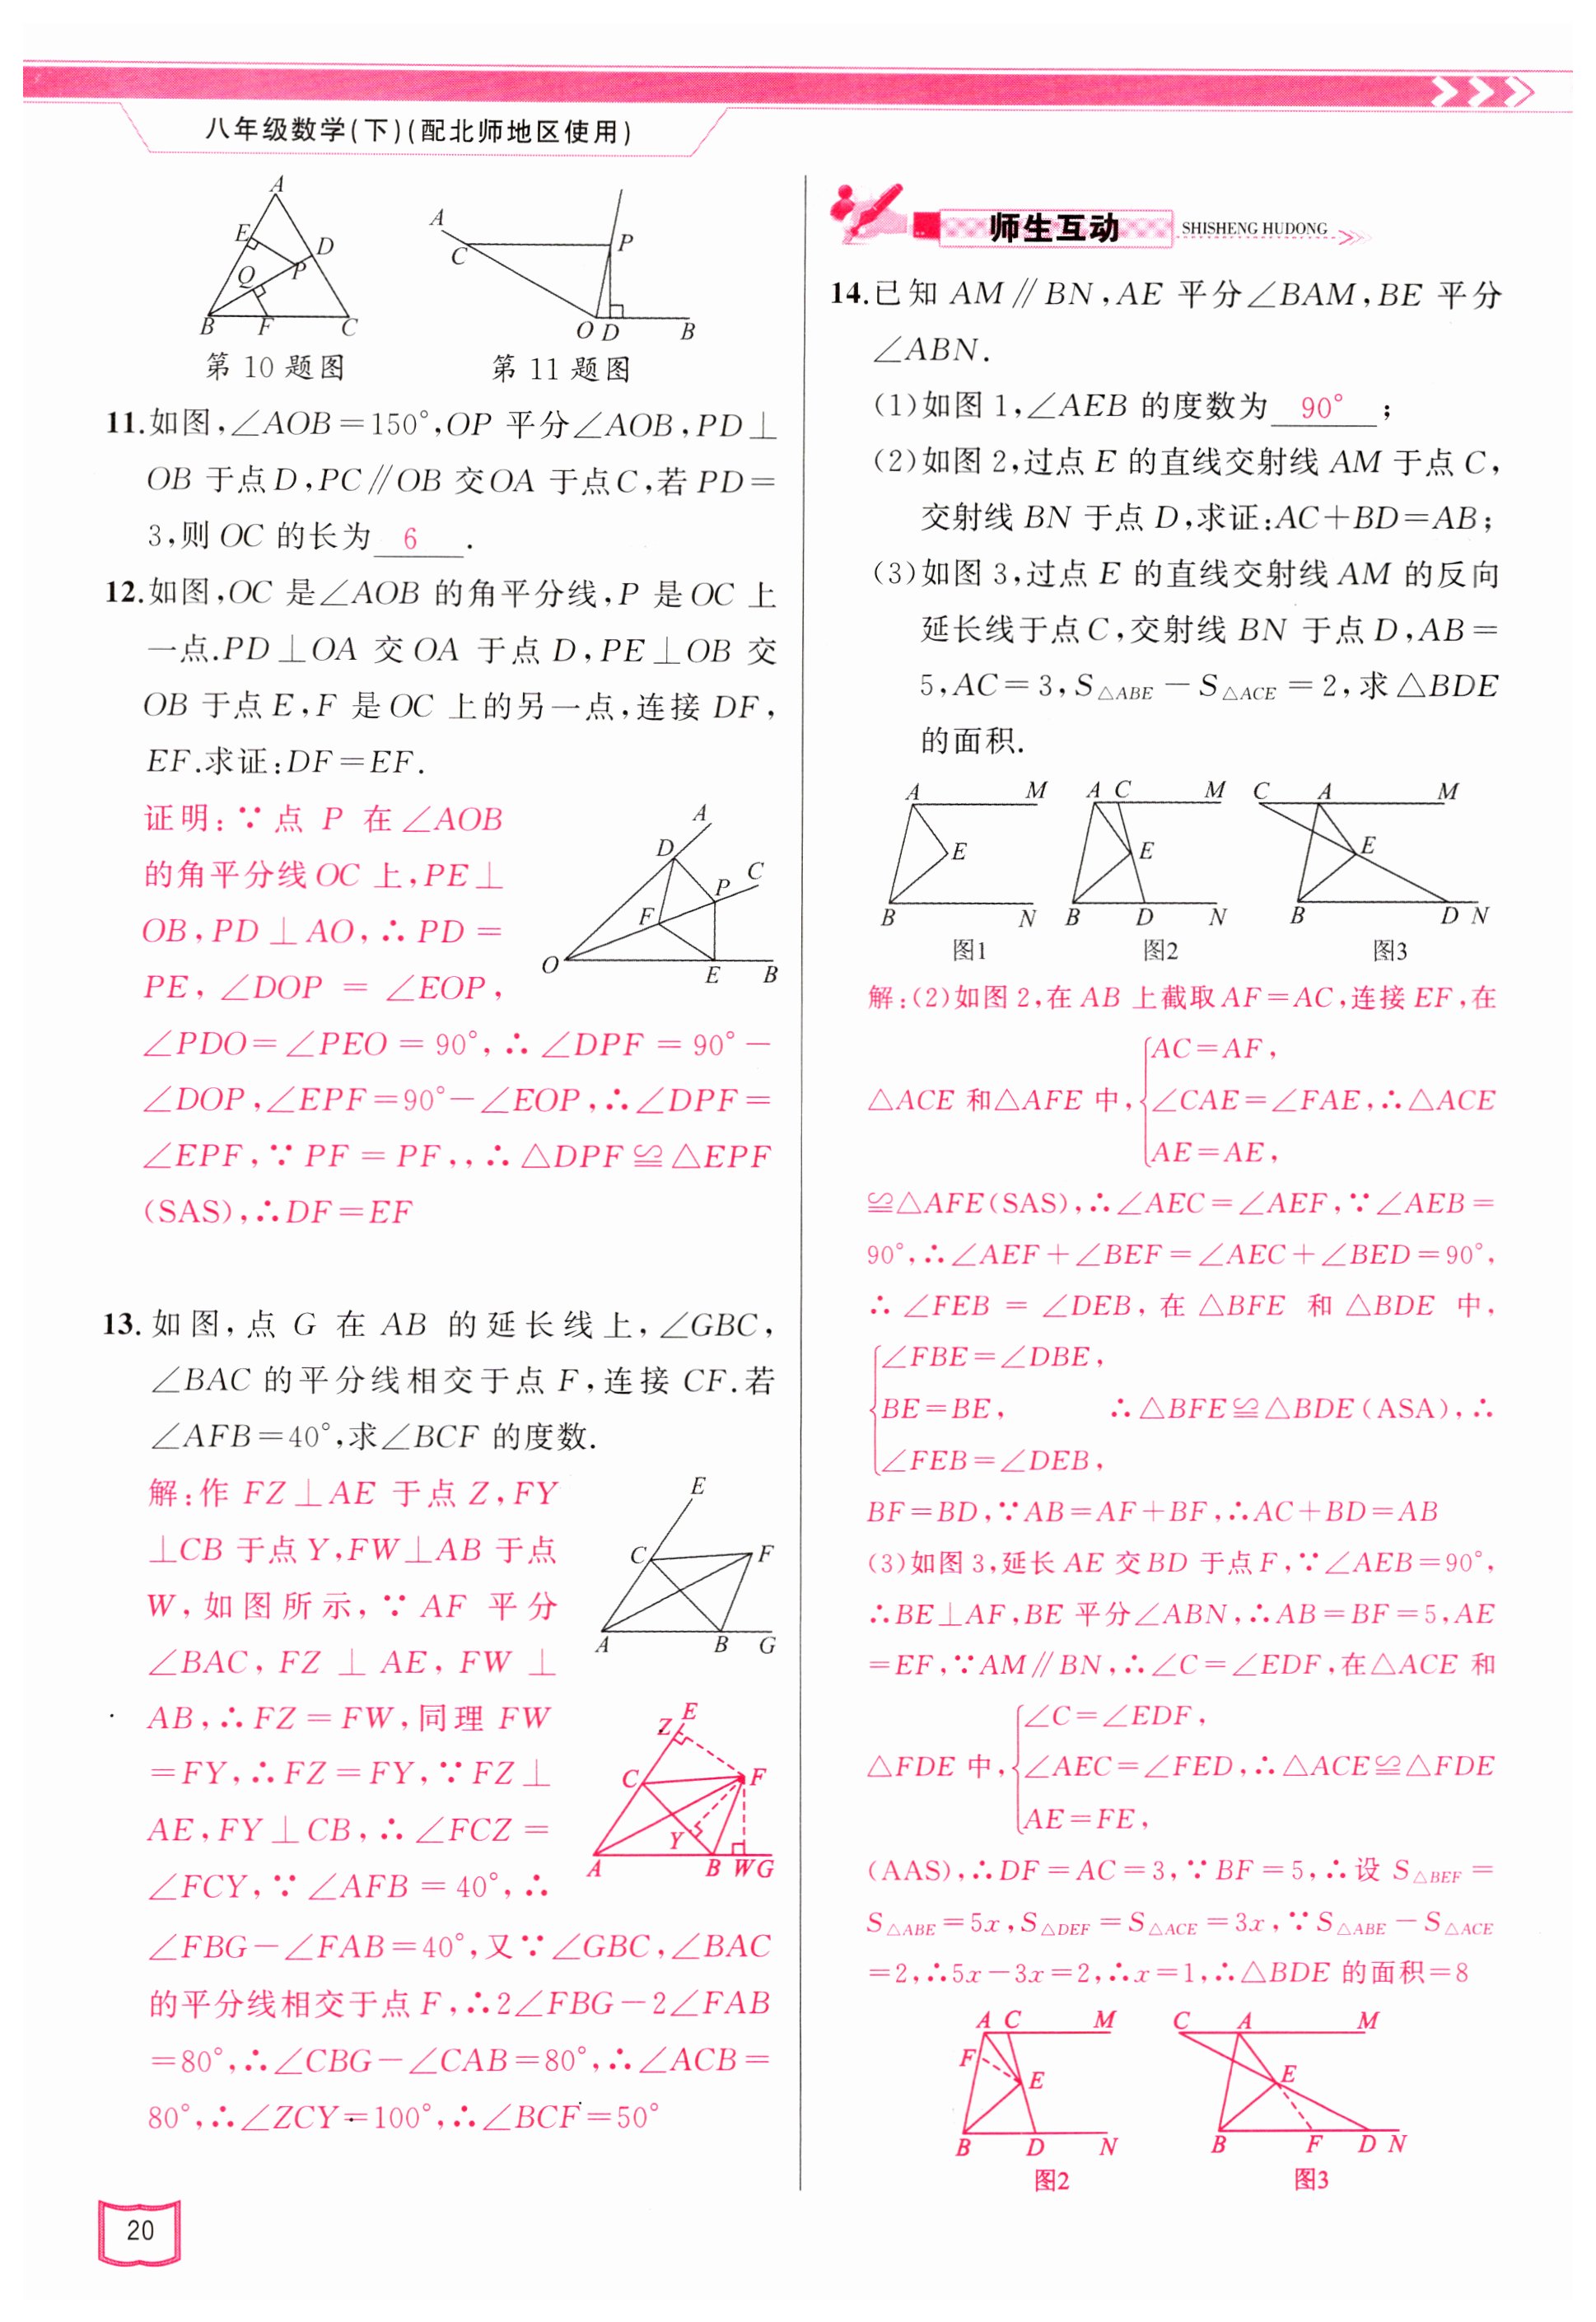 八年级数学(下)(配北师地区使用)
A
E
D
Q
P
B
F
C
第 10 题图
A
C
P
O
D
B
第 11 题图
11.如图,∠AOB=150°,OP 平分∠AOB,PD⊥
OB 于点D,PC∥OB 交OA 于点C,若PD=
3,则OC 的长为 6 .
12.如图,OC 是∠AOB 的角平分线,P 是OC 上
一点.PD⊥OA 交 OA 于点 D,PE⊥OB 交
OB 于点E,F 是OC 上的另一点,连接 DF,
EF.求证:DF=EF.
证明:∵点 P 在∠AOB
的角平分线OC 上,PE⊥
OB,PD⊥AO,∴PD=
PE,∠DOP=∠EOP,
∠PDO=∠PEO=90°,∴∠DPF=90°-
∠DOP,∠EPF=90°-∠EOP,∴∠DPF=
∠EPF,∵PF=PF,,∴△DPF≌△EPF
(SAS),∴DF=EF
A
D
C
P
F
O
E
B
13.如图,点 G 在 AB 的延长线上,∠GBC,
∠BAC 的平分线相交于点 F,连接 CF.若
∠AFB=40°,求∠BCF 的度数.
解:作 FZ⊥AE 于点 Z,FY
⊥CB 于点Y,FW⊥AB 于点
W,如图所示,∵AF 平分
∠BAC,FZ⊥AE,FW⊥
AB,∴FZ=FW,同理 FW
=FY,∴FZ=FY,∵FZ⊥
AE,FY⊥CB,∴∠FCZ=
∠FCY,∵∠AFB=40°,∴
∠FBG-∠FAB=40°,又∵∠GBC,∠BAC
的平分线相交于点F,∴2∠FBG-2∠FAB
=80°,∴∠CBG-∠CAB=80°,∴∠ACB=
80°,∴∠ZCY=100°,∴∠BCF=50°
E
C
F
A
B
G
Z
E
C
F
Y
A
B
W
G
20
师生互动 SHISHENG HUDONG
14.已知 AM∥BN,AE 平分∠BAM,BE 平分
∠ABN.
(1)如图 1,∠AEB 的度数为 90° ;
(2)如图 2,过点 E 的直线交射线 AM 于点 C,
交射线 BN 于点 D,求证:AC+BD=AB;
(3)如图 3,过点 E 的直线交射线 AM 的反向
延长线于点C,交射线 BN 于点 D,AB=
5,AC=3,S△ABE-S△ACE=2,求△BDE
的面积.
A
M
E
B
N
图1
A
C
M
E
B
D
N
图2
C
A
M
E
B
D
N
图3
解:(2)如图 2,在 AB 上截取 AF=AC,连接 EF,在
AC=AF,
△ACE 和△AFE 中,∠CAE=∠FAE,∴△ACE
AE=AE,
≌△AFE(SAS),∴∠AEC=∠AEF,∵∠AEB=
90°,∴∠AEF+∠BEF=∠AEC+∠BED=90°,
∴∠FEB=∠DEB,在△BFE 和△BDE 中,
∠FBE=∠DBE,
BE=BE, ∴△BFE≌△BDE(ASA),∴
∠FEB=∠DEB,
BF=BD,∵AB=AF+BF,∴AC+BD=AB
(3)如图 3,延长 AE 交BD 于点F,∵∠AEB=90°,
∴BE⊥AF,BE 平分∠ABN,∴AB=BF=5,AE
=EF,∵AM∥BN,∴∠C=∠EDF,在△ACE 和
∠C=∠EDF,
△FDE 中,∠AEC=∠FED,∴△ACE≌△FDE
AE=FE,
(AAS),∴DF=AC=3,∵BF=5,∴设 S△BEF=
S△ABE=5x,S△DEF=S△ACE=3x,∵S△ABE-S△ACE
=2,∴5x-3x=2,∴x=1,∴△BDE 的面积=8
A
C
M
F
E
B
D
N
图2
C
A
M
E
B
F
D
N
图3